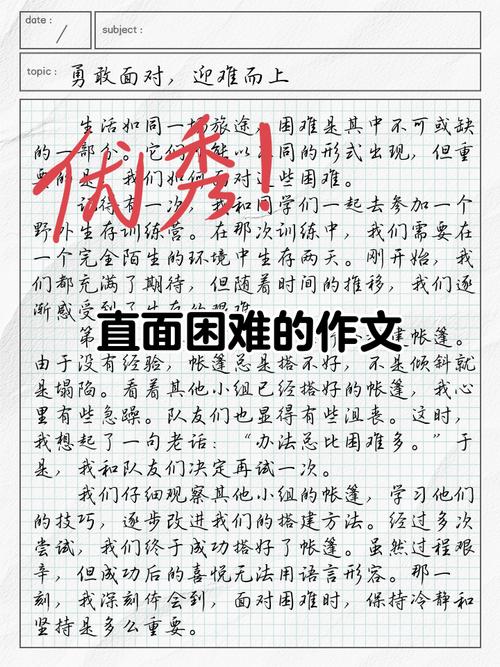 date :
subject :
topic : 勇敢面对，迎难而上
生活如同一场旅途，困难是其中不可或缺
的一部分。它们 能以 同的形式出现，但重
要的是，我们如何面对这些困难。
记得有一次，我和同学们一起去参加一个
野外生存训练营。在那次训练中，我们需要在
一个完全陌生的环境中生存两天。刚开始，我
们都充满了期待，但随着时间的推移，我们逐
渐感受到了生存的艰难
优秀！
直面困难的作文
第 建帐篷。
由于没有经验，帐篷总是搭不好，不是倾斜就
是塌陷。看着其他小组已经搭好的帐篷，我心
里有些急躁。队友们也显得有些沮丧。这时，
我想起了一句老话：“办法总比困难多。”于
是，我和队友们决定再试一次。
我们仔细观察其他小组的帐篷，学习他们
的技巧，逐步改进我们的搭建方法。经过多次
尝试，我们终于成功搭好了帐篷。虽然过程艰
辛，但成功后的喜悦无法用语言形容。那一
刻，我深刻体会到，面对困难时，保持冷静和
坚持是多么重要。